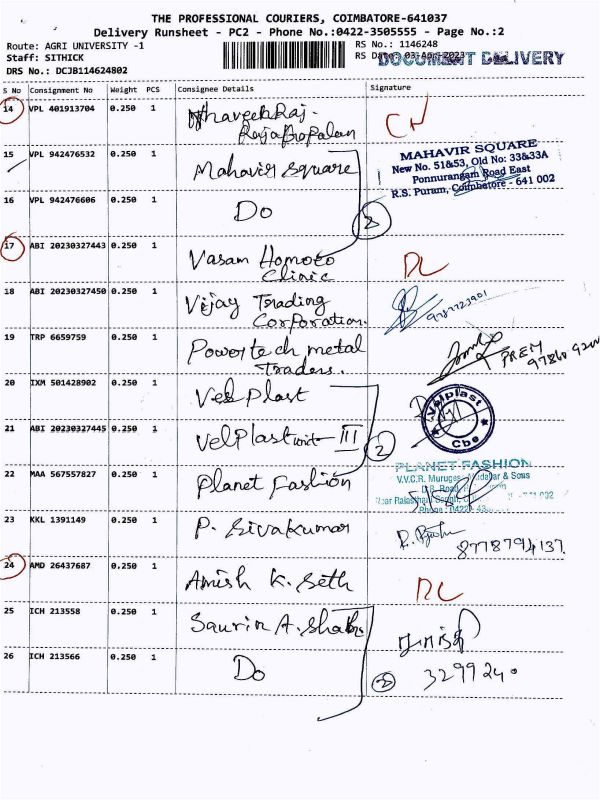 THE PROFESSIONAL COURIERS, COIMBATORE-641037
Delivery Runsheet - PC2 - Phone No.:0422-3505555 - Page No.:2
Route: AGRI UNIVERSITY -1
RS No.: 1146248
Staff: SITHICK
RS Date: 03-Apr-2023
DOCUMENT DELIVERY
DRS No.: DCJB114624802
S No Consignment No Weight PCS Consignee Details Signature
14 VPL 401913704 0.250 1
CN
15 VPL 942476532 0.250 1 Mahavir Square
MAHAVIR SQUARE
New No. 51&53, Old No: 33&33A
Ponnurangam Road East
R.S. Puram, Coimbatore - 641 002
16 VPL 942476606 0.250 1 Do
17 ABI 20230327443 0.250 1 Vasam Homoeo
Clinic
DL
18 ABI 20230327450 0.250 1 Vijay Trading
Corporation.
9787723901
19 TRP 6659759 0.250 1 Powertech metal
Traders.
PREM
20 IXM 501428902 0.250 1 Vel Plast
Velplast
Cbe
21 ABI 20230327445 0.250 1 VelPlast unit III
2
22 MAA 567557827 0.250 1 Planet Fashion
PLANET FASHION
23 KKL 1391149 0.250 1 P. Sivakumar
8778794137
24 AMD 26437687 0.250 1 Amish K. Seth
DL
25 ICH 213558 0.250 1 Saurin A. Shah
26 ICH 213566 0.250 1 Do
3299240